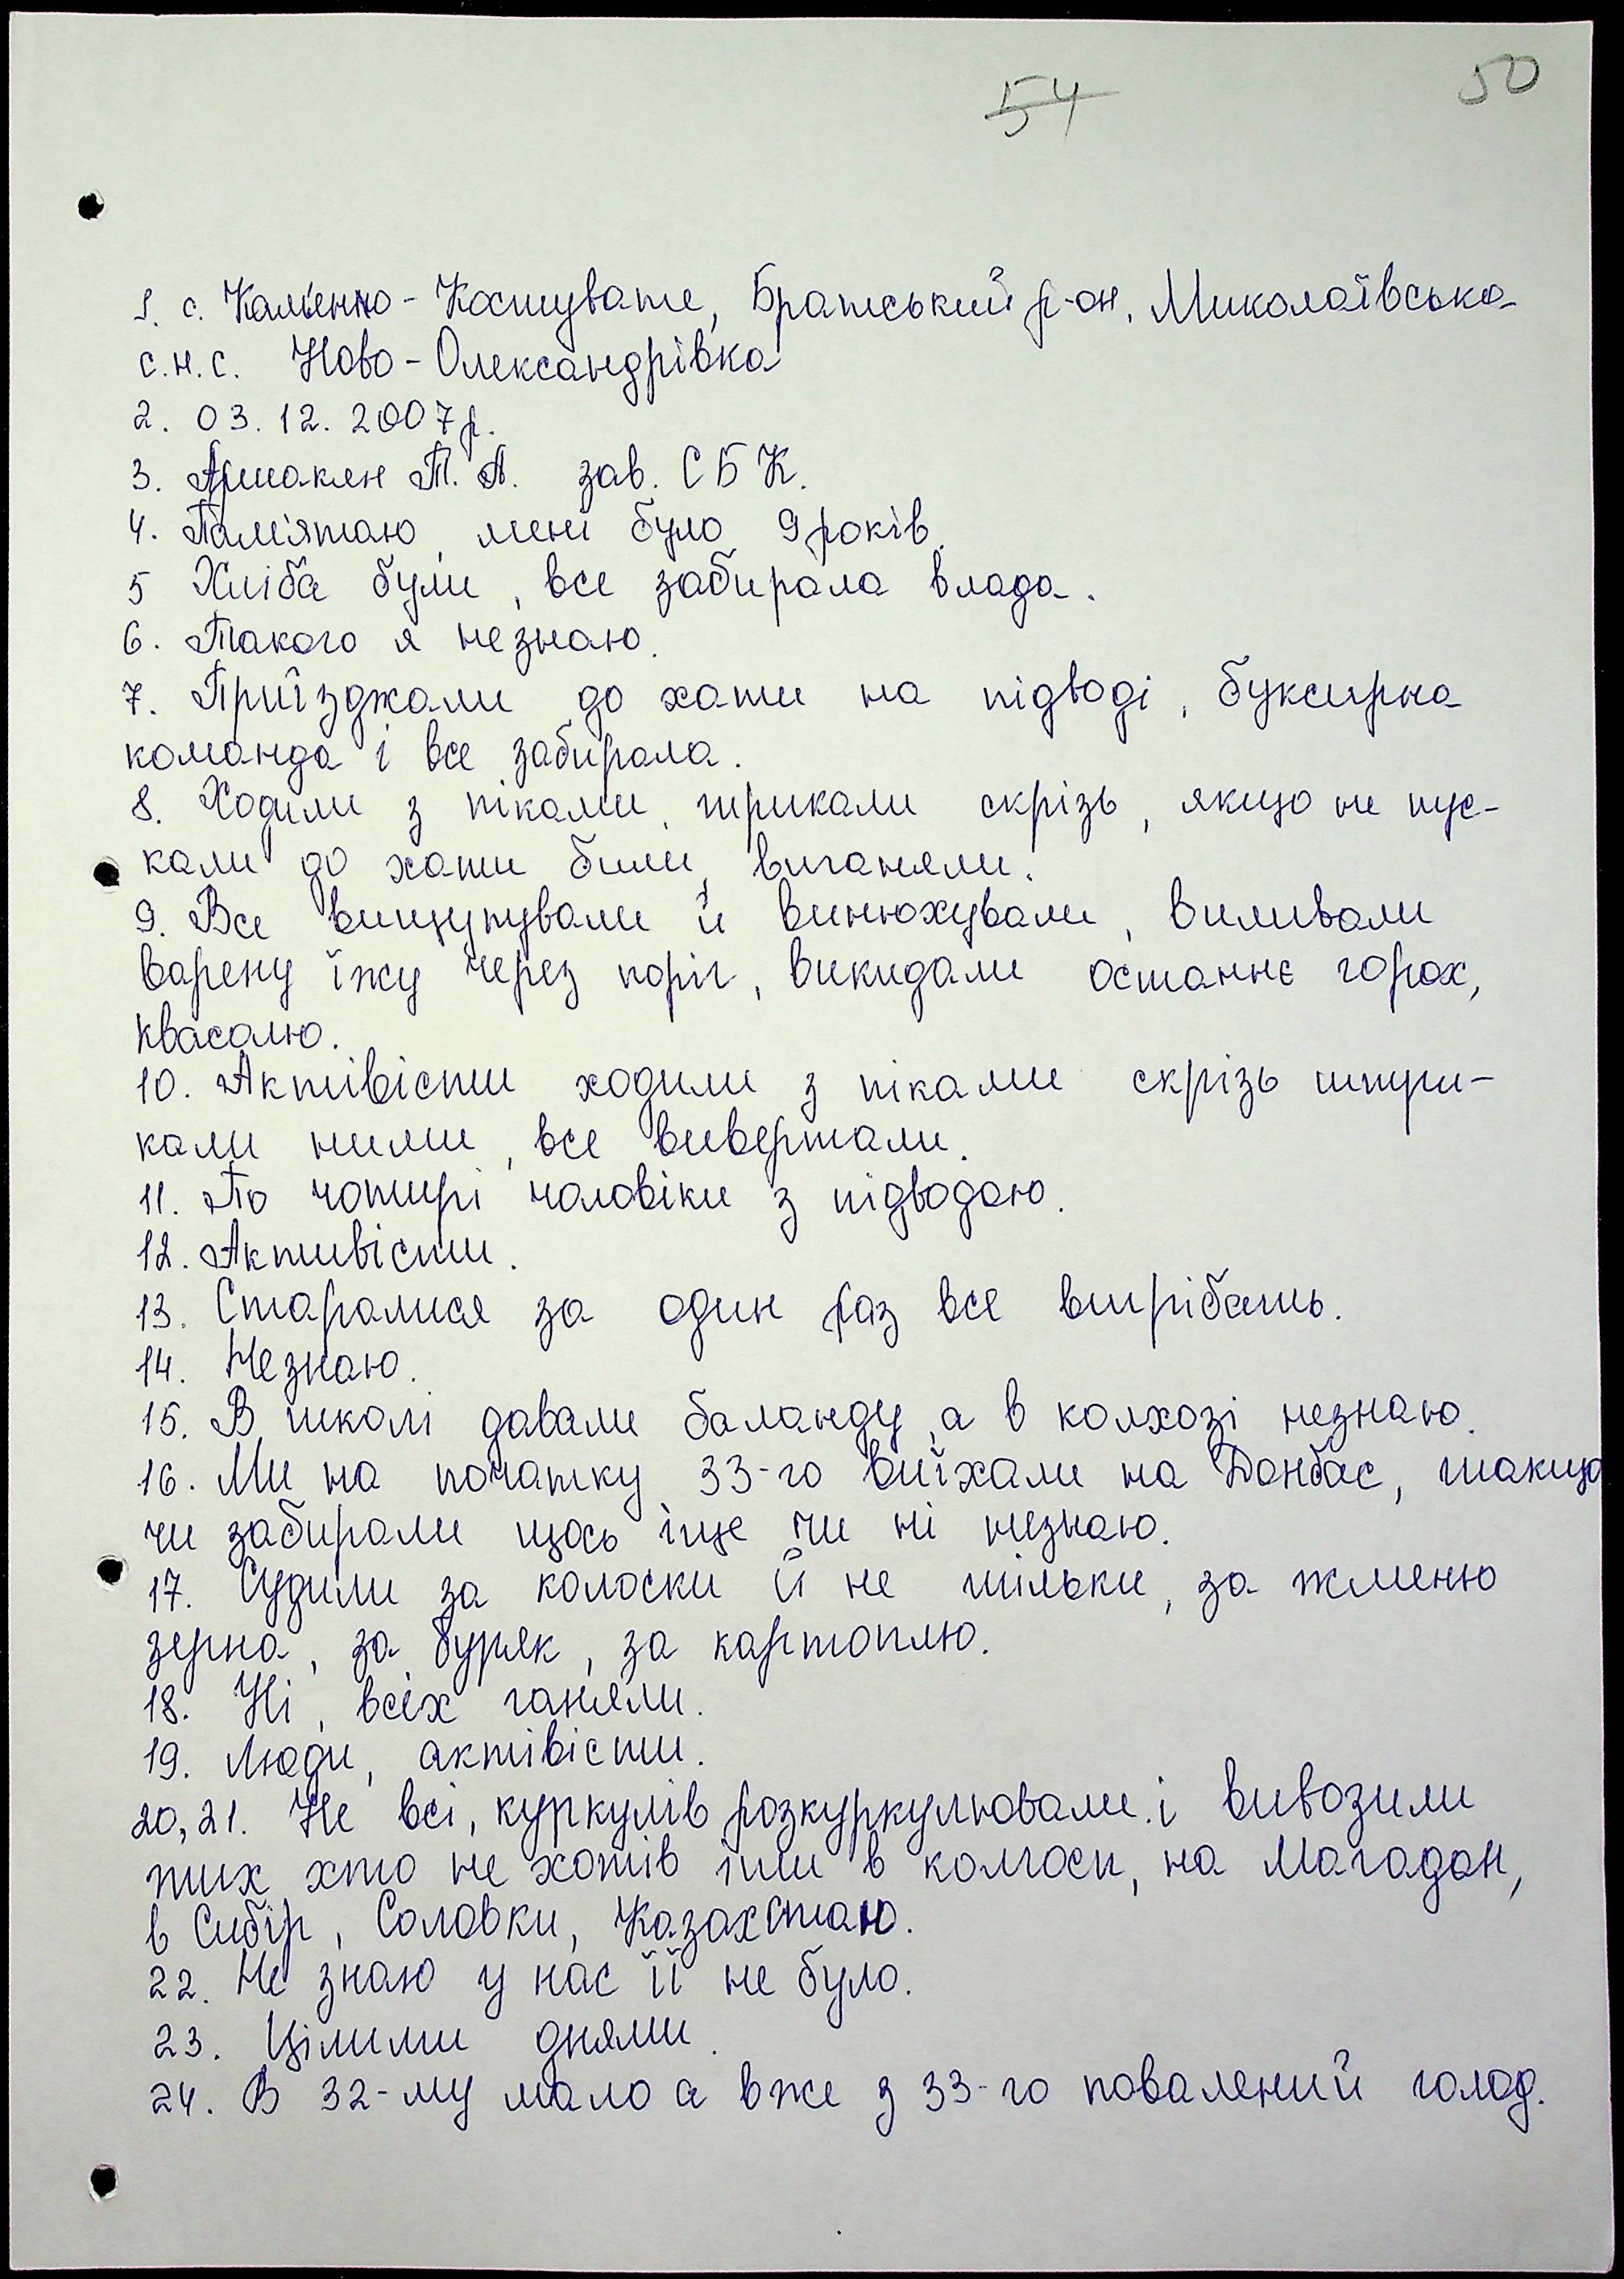 54
50
1. с. Кам'енно-Костувате, Братський р-он, Миколаївська
с.н.с. Ново-Олександрівка
2. 03.12.2007р.
3. Аршакян Т. А. зав. СБК.
4. Пам'ятаю, мені було 9 років.
5 Хліба були, все забирала влада.
6. Такого я незнаю.
7. Приїзджали до хати на підводі, буксирна
команда і все забирала.
8. Ходили з піками, штрикали скрізь, якщо не пус-
кали до хати били, виганяли.
9. Все вищупували й винюхували, виливали
варену їжу через поріг, викидали останнє горох,
квасолю.
10. Активісти ходили з піками скрізь штри-
кали ними, все вивертали.
11. По чотирі чоловіки з підводою.
12. Активісти.
13. Старалися за один раз все вигрібать.
14. Незнаю.
15. В школі давали баланду, а в колхозі незнаю.
16. Ми на початку 33-го виїхали на Донбас, такщо
чи забирали щось іще чи ні незнаю.
17. Судили за колоски й не тільки, за жменю
зерна, за буряк, за картоплю.
18. Ні, всіх ганяли.
19. Люди, актівісти.
20,21. Не всі, куркулів розкуркулювали і вивозили
тих хто не хотів іти в колгосп, на Магадан,
в Сибір, Соловки, Казахстан.
22. Не знаю у нас її не було.
23. Цілими днями.
24. В 32-му мало а вже з 33-го повалений голод.